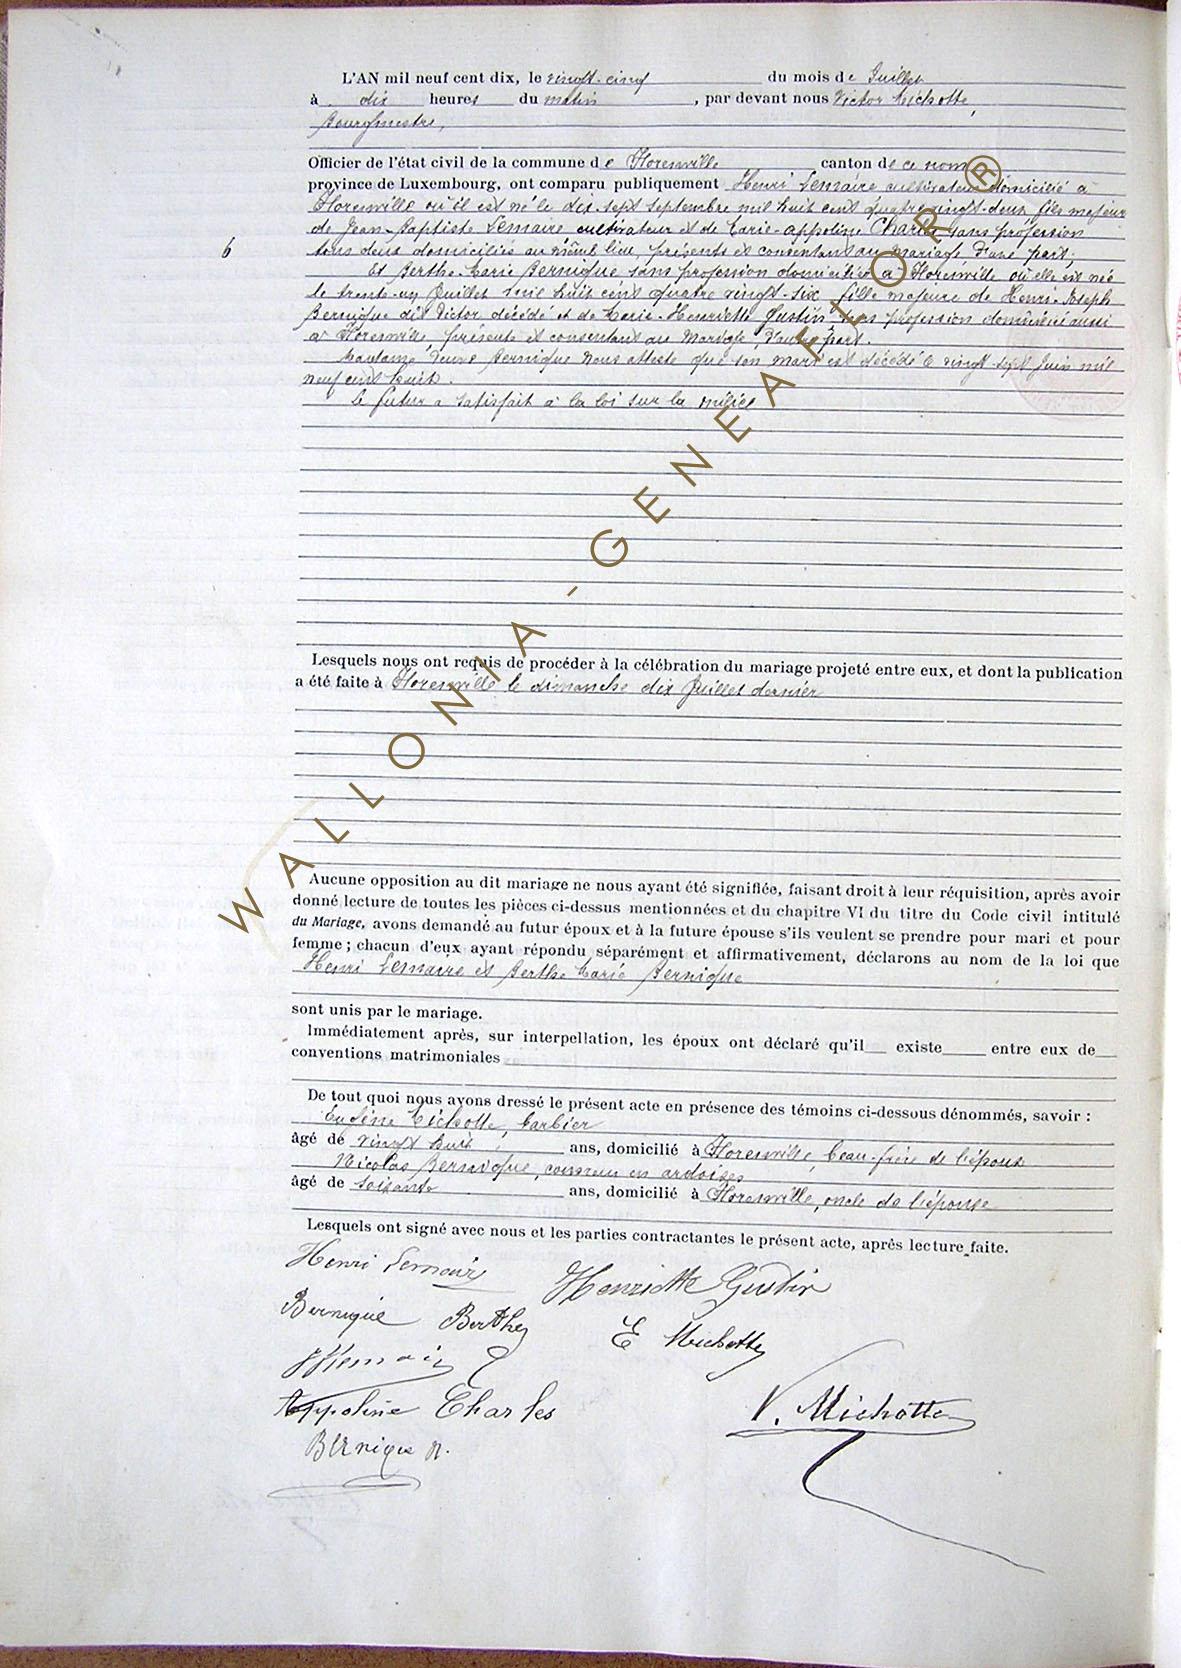 L'AN mil neuf cent dix, le vingt-cinq du mois de Juillet
à dix heures du matin, par devant nous Victor Michotte,
Bourgmestre,
Officier de l'état civil de la commune de Florenville canton de ce nom
province de Luxembourg, ont comparu publiquement Henri Lemaire cultivateur domicilié à
Florenville où il est né le dix-sept septembre mil huit cent quatre vingt-deux fils majeur
de Jean-Baptiste Lemaire cultivateur et de Marie-appoline Charles sans profession
tous deux domiciliés au même lieu, présents et consentant au mariage d'une part;
6
Et Berthe-Marie Bernique sans profession domiciliée à Florenville où elle est née
le trente-un Juillet mil huit cent quatre vingt-six fille majeure de Henri-Joseph
Bernique dit Victor décédé et de Marie-Henriette Gustin sans profession domiciliée aussi
à Florenville, présente et consentant au mariage, d'autre part.
Madame veuve Bernique nous atteste que son mari est décédé le vingt-sept Juin mil
neuf cent huit.
Le futur a satisfait à la loi sur la milice
Lesquels nous ont requis de procéder à la célébration du mariage projeté entre eux, et dont la publication
a été faite à Florenville le dimanche dix Juillet dernier
Aucune opposition au dit mariage ne nous ayant été signifiée, faisant droit à leur réquisition, après avoir
donné lecture de toutes les pièces ci-dessus mentionnées et du chapitre VI du titre du Code civil intitulé
du Mariage, avons demandé au futur époux et à la future épouse s'ils veulent se prendre pour mari et pour
femme ; chacun d'eux ayant répondu séparément et affirmativement, déclarons au nom de la loi que
Henri Lemaire et Berthe Marie Bernique
sont unis par le mariage.
Immédiatement après, sur interpellation, les époux ont déclaré qu'il existe entre eux de
conventions matrimoniales
De tout quoi nous avons dressé le présent acte en présence des témoins ci-dessous dénommés, savoir :
Eugène Michotte, barbier
âgé de vingt huit ans, domicilié à Florenville, beau-frère de l'épouse
Nicolas Bernique, couvreur en ardoises
âgé de soixante ans, domicilié à Florenville, oncle de l'épouse
Lesquels ont signé avec nous et les parties contractantes le présent acte, après lecture faite.
Henri Lemaire Henriette Gustin
Bernique Berthe E Michotte
Appoline Charles V. Michotte
Bernique N.
WALLONIA - GENEAFLOR ®